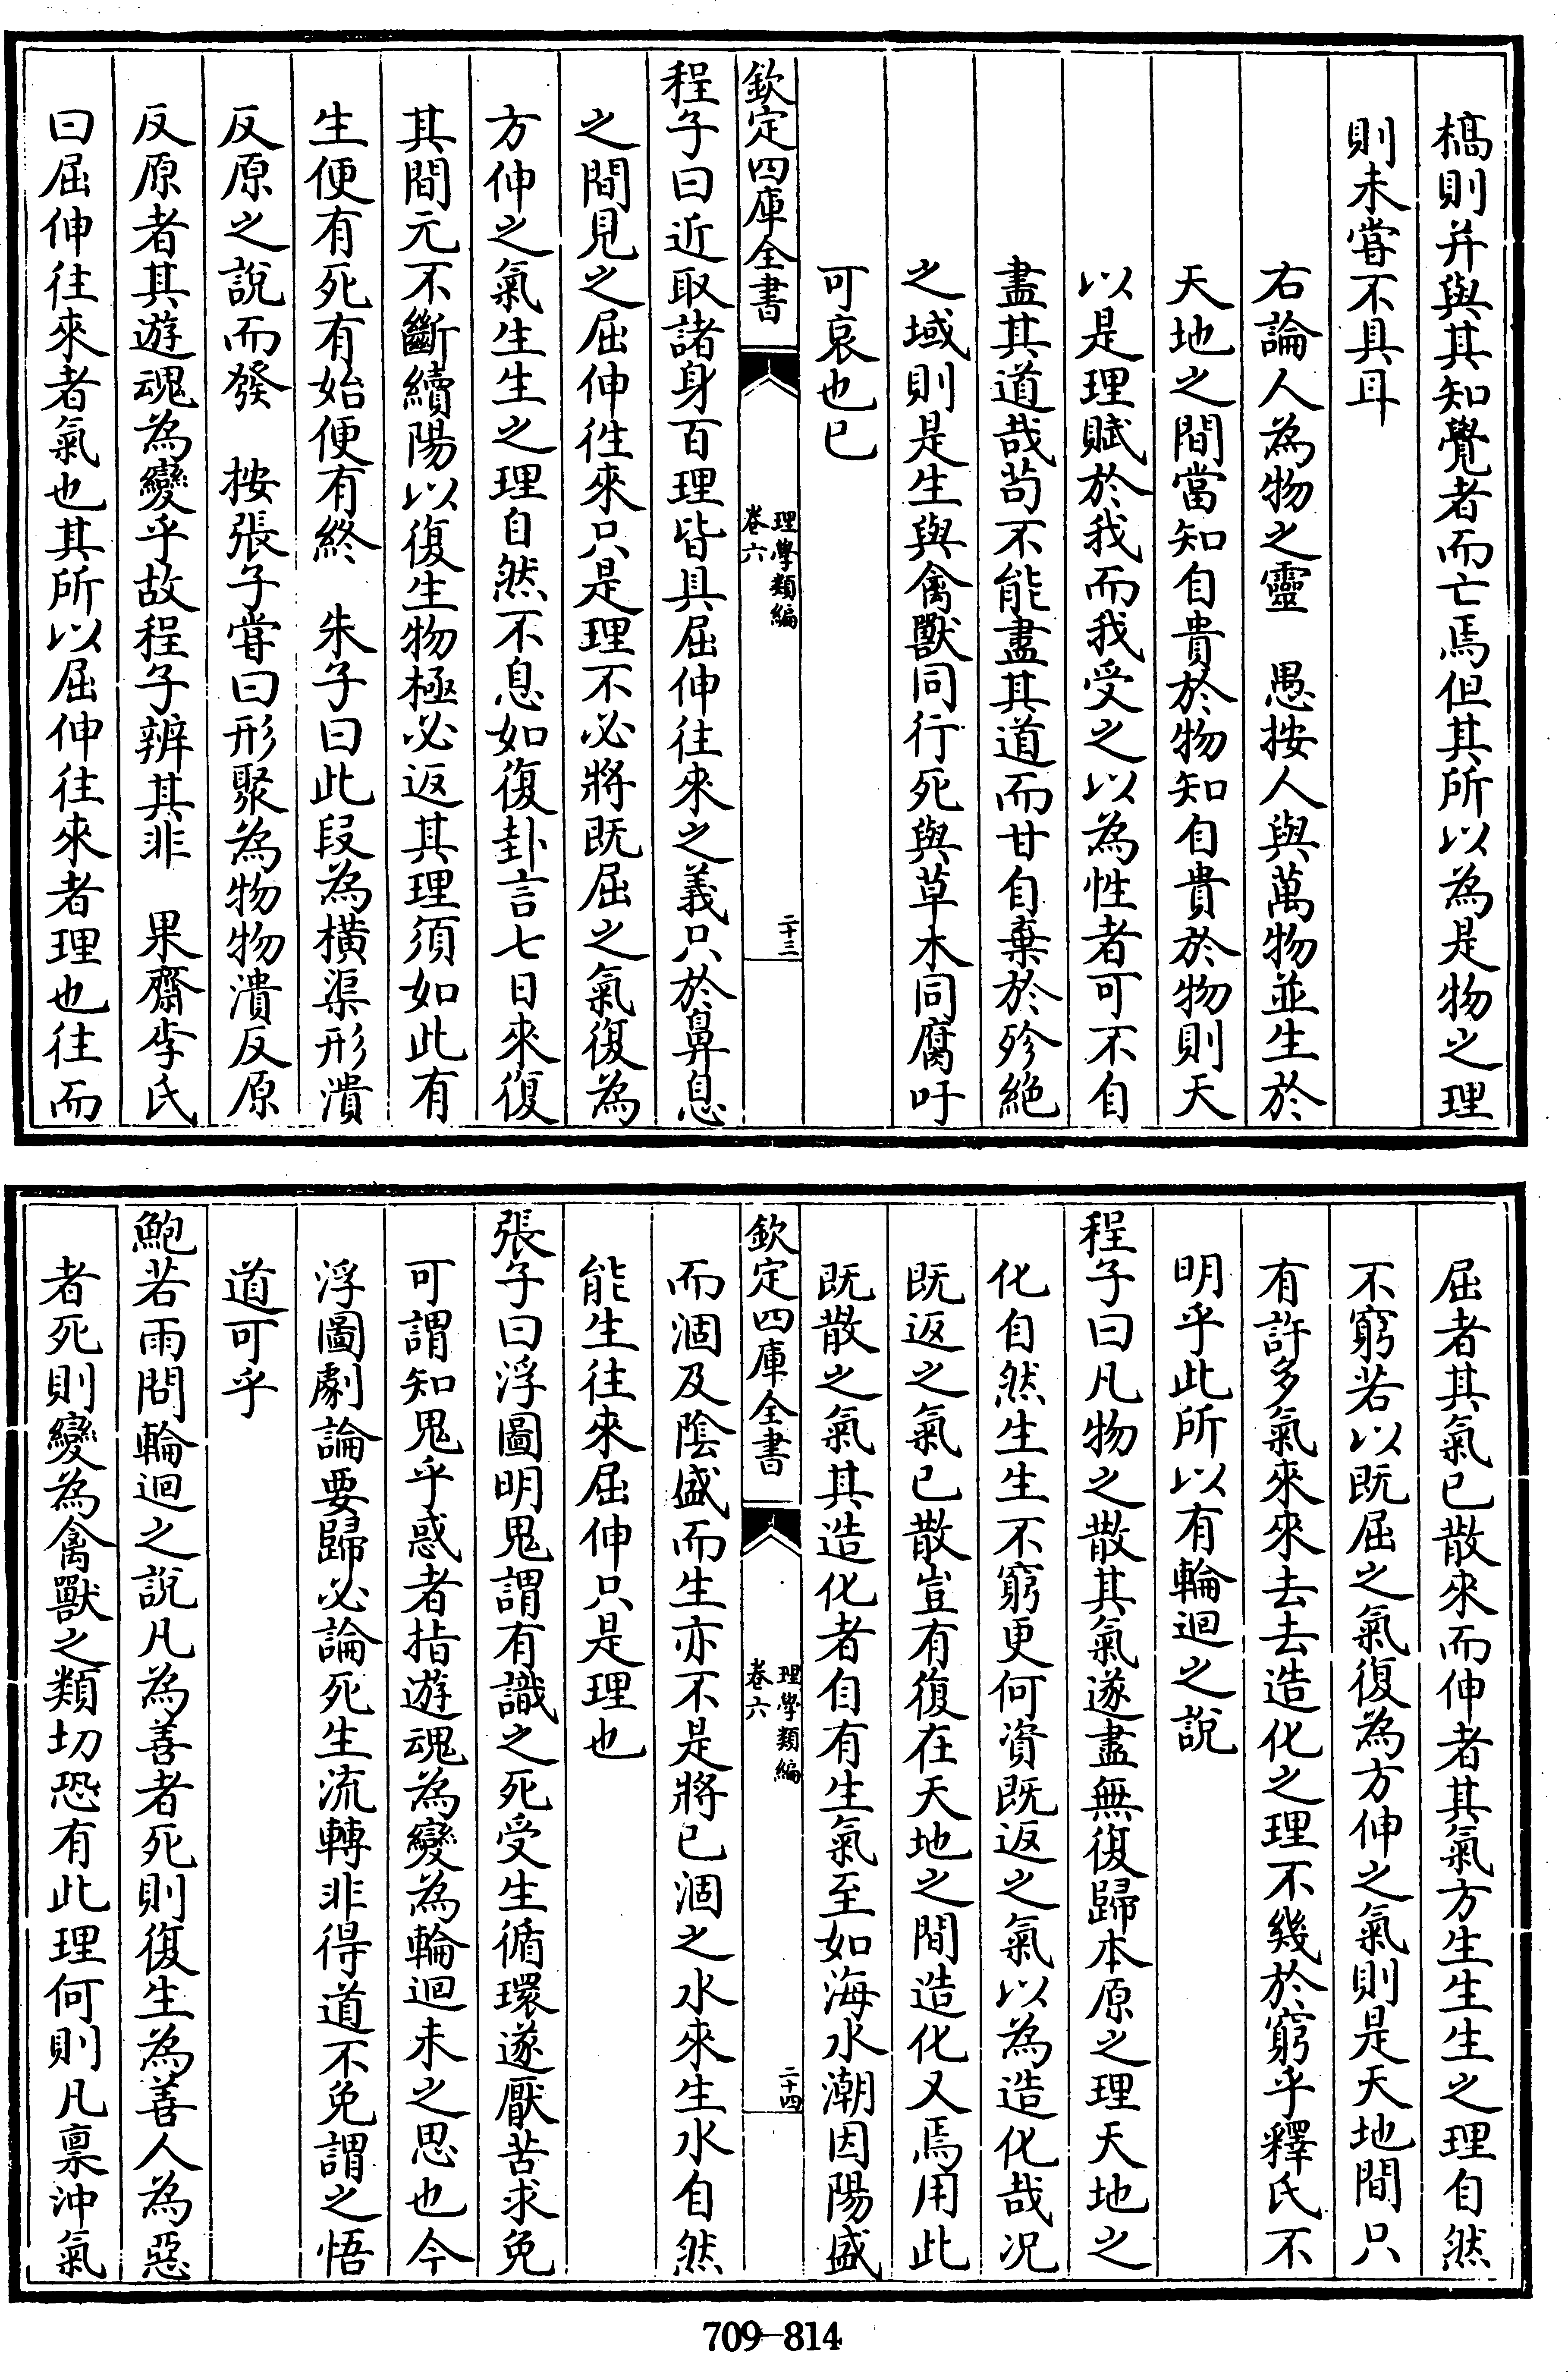 槁則并與其知覺者而亡焉但其所以為是物之理
則未嘗不具耳
右論人為物之靈　愚按人與萬物並生於
天地之間當知自貴於物知自貴於物則天
以是理賦於我而我受之以為性者可不自
盡其道哉苟不能盡其道而甘自棄於殄絕
之域則是生與禽獸同行死與草木同腐吁
可哀也已
欽定四庫全書
理學類編
卷六
二十三
程子曰近取諸身百理皆具屈伸往來之義只於鼻息
之間見之屈伸徃來只是理不必將既屈之氣復為
方伸之氣生生之理自然不息如復卦言七日來復
其間元不斷續陽以復生物極必返其理須如此有
生便有死有始便有終　朱子曰此段為橫渠形潰
反原之說而發　按張子嘗曰形聚為物物潰反原
反原者其遊魂為變乎故程子辨其非　果齋李氏
曰屈伸往來者氣也其所以屈伸往來者理也往而
屈者其氣已散來而伸者其氣方生生生之理自然
不窮若以既屈之氣復為方伸之氣則是天地間只
有許多氣來來去去造化之理不幾於窮乎釋氏不
明乎此所以有輪迴之說
程子曰凡物之散其氣遂盡無復歸本原之理天地之
化自然生生不窮更何資既返之氣以為造化哉况
既返之氣已散豈有復在天地之間造化又焉用此
既散之氣其造化者自有生氣至如海水潮因陽盛
欽定四庫全書
理學類編
卷六
二十四
而涸及陰盛而生亦不是將已涸之水來生水自然
能生往來屈伸只是理也
張子曰浮圖明鬼謂有識之死受生循環遂厭苦求免
可謂知鬼乎惑者指遊魂為變為輪迴未之思也今
浮圖劇論要歸必論死生流轉非得道不免謂之悟
道可乎
鮑若雨問輪迴之說凡為善者死則復生為善人為惡
者死則變為禽獸之類切恐有此理何則凡稟沖氣
709-814